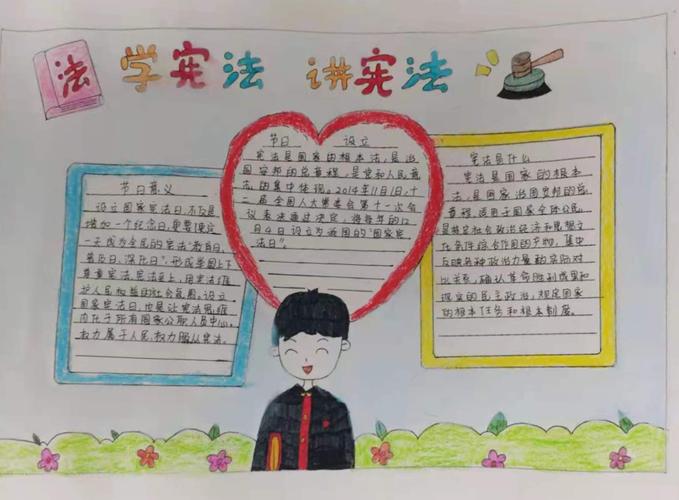 法
学宪法 讲宪法
节日意义
设立国家宪法日，不仅是
增加一个纪念日，更要使这
一天成为全民的宪法“教育日、
普及日、深化日”，形成举国上下
尊重宪法、宪法至上、用宪法维
护人民权益的社会氛围。设立
国家宪法日，也是让宪法思维
内化于所有国家公职人员中心。
权力属于人民，权力服从宪法。
节日 设立
宪法是国家的根本法，是治
国安邦的总章程，是党和人民意
志的集中体现。2014年11月1日，十
二届全国人大常委会第十一次会
议表决通过决定，将每年的12
月4日设立为我国的“国家宪
法日”。
宪法是什么
宪法是国家的根本
法，是国家治国安邦的总
章程，适用于国家全体公民，
是特定社会政治经济和思想文
化条件综合作用的产物，集中
反映各种政治力量的实际对
比关系，确认革命胜利成果和
现实的民主政治，规定国家
的根本任务和根本制度。